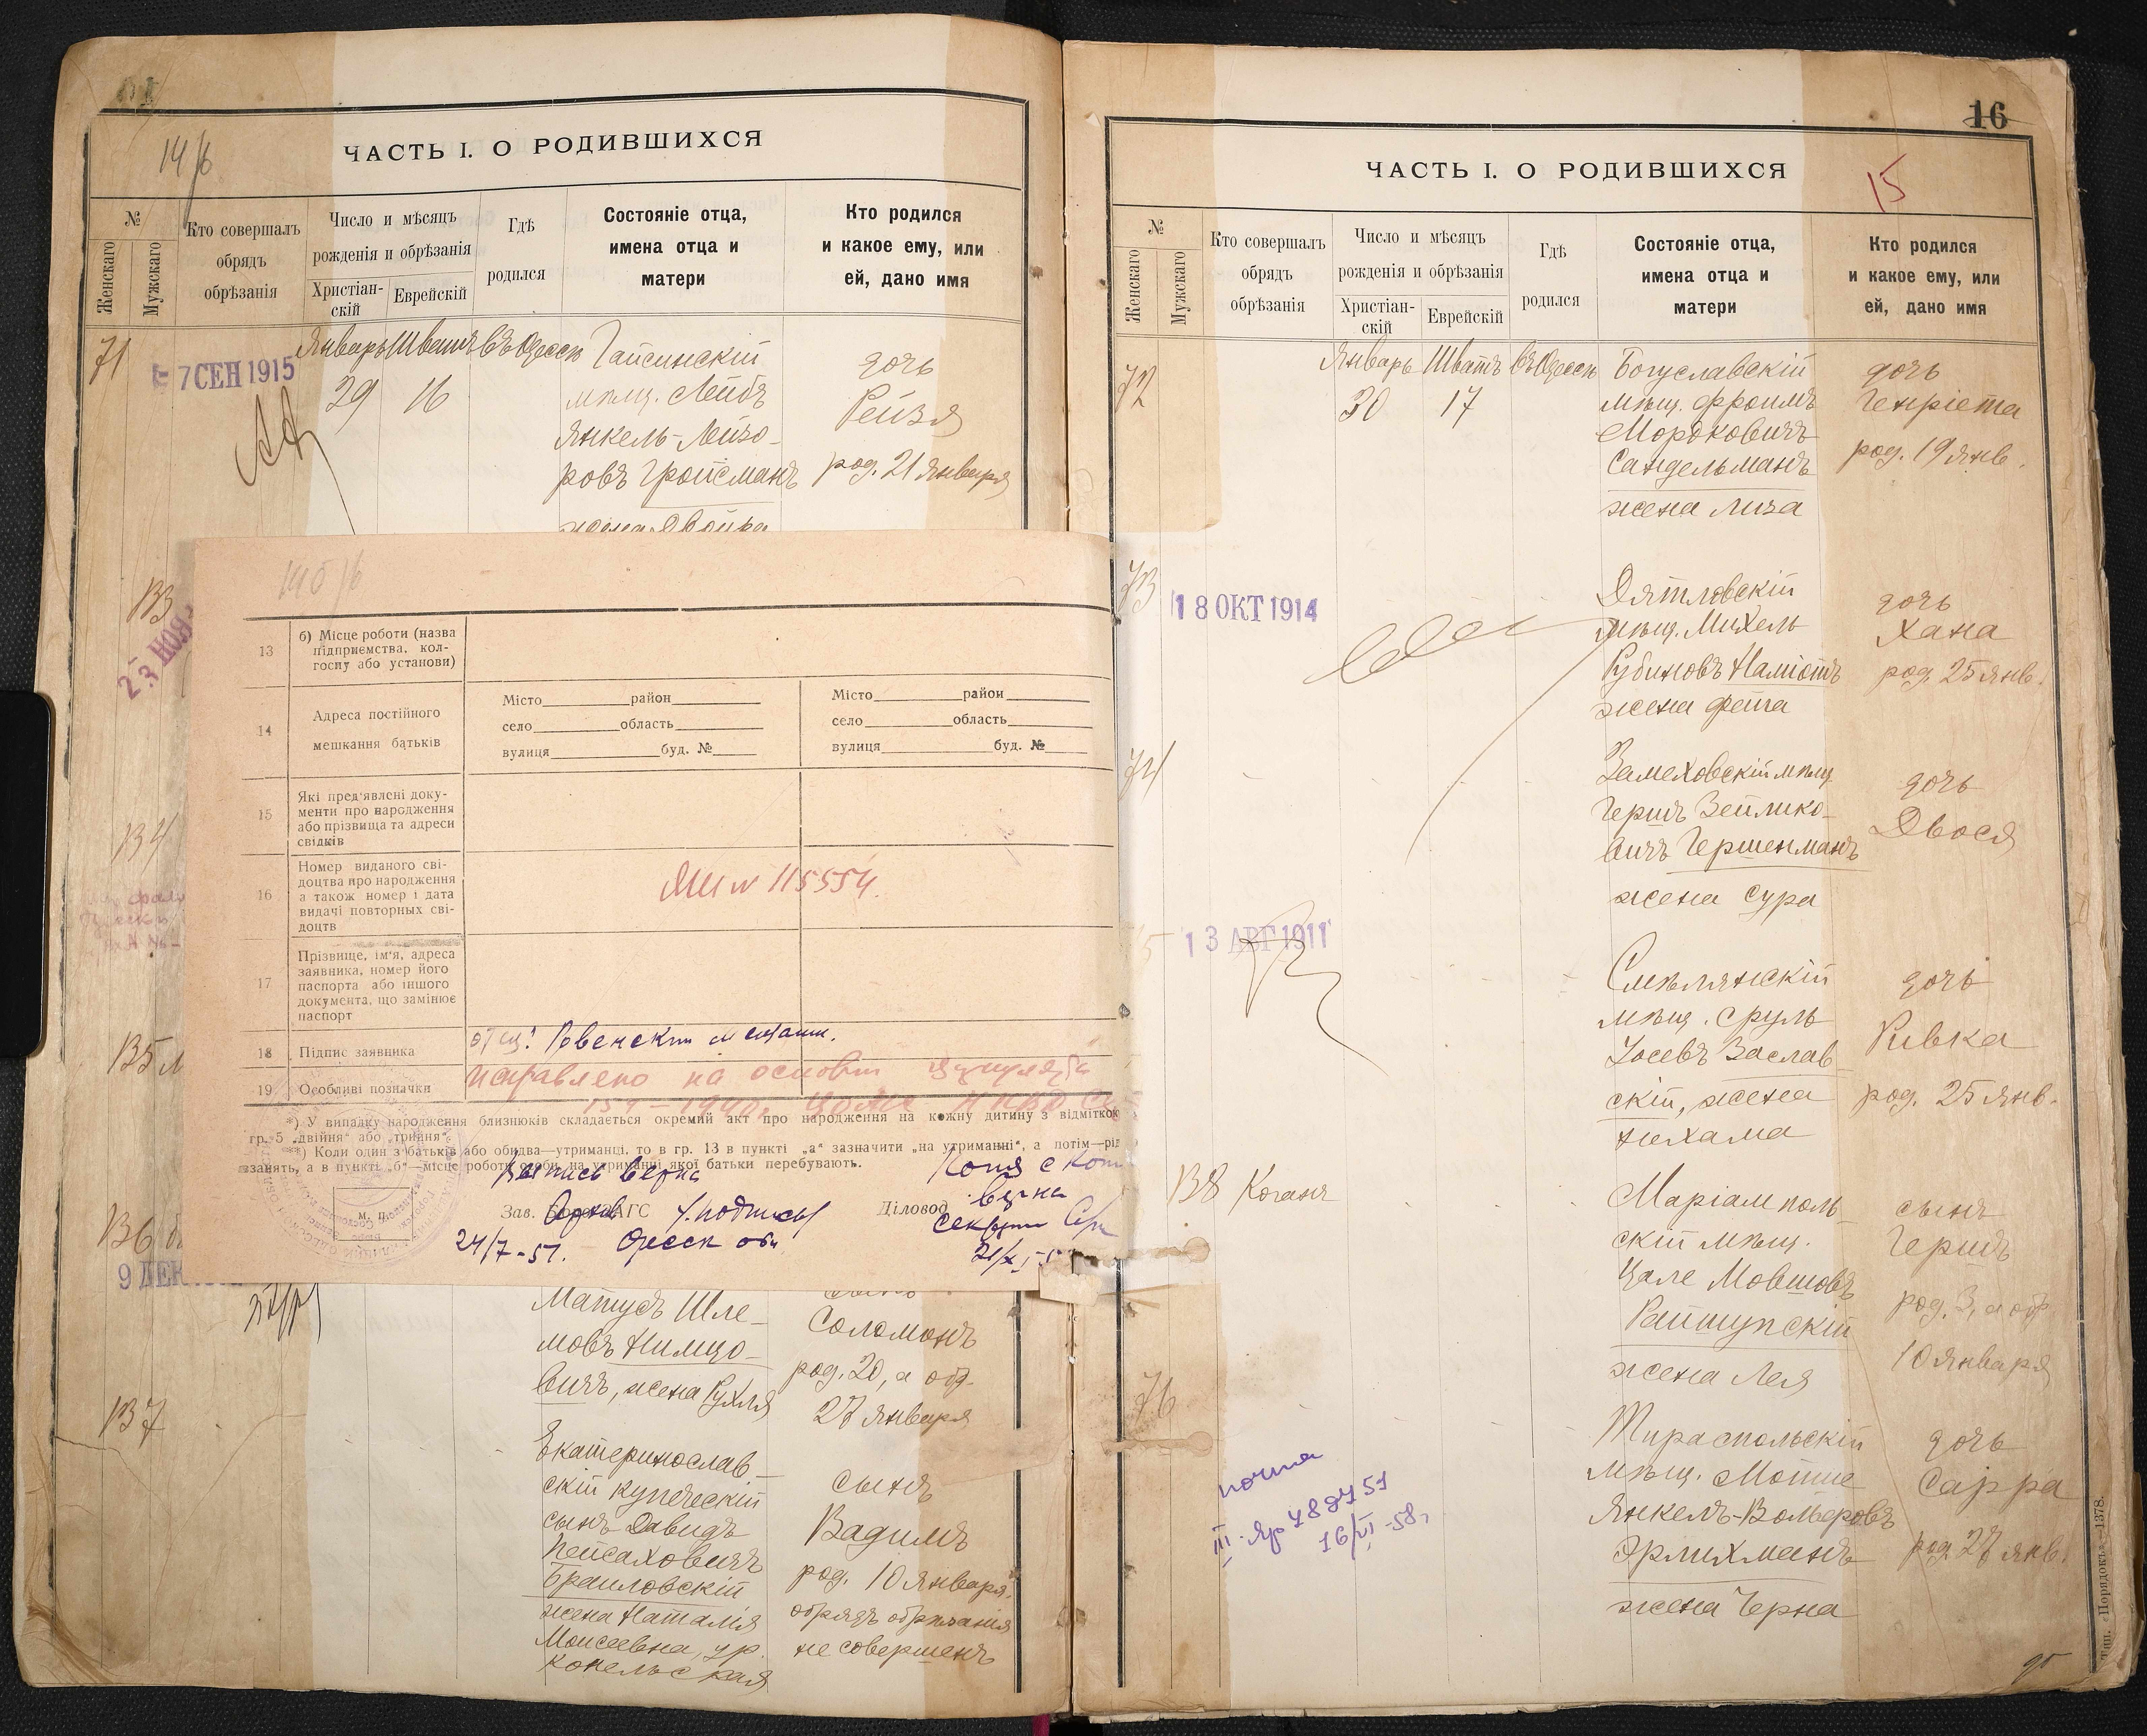 14/б
ЧАСТЬ I. О РОДИВШИХСЯ
№
Женскаго
Мужскаго
Кто совершалъ
обрядъ
обрѣзанія
Число и мѣсяцъ
рожденія и обрѣзанія
Христіан-
скій
Еврейскій
Гдѣ
родился
Состояніе отца,
имена отца и
матери
Кто родился
и какое ему, или
ей, дано имя
71
7 СЕН 1915
Январь Шватъ въ Одессѣ
29 16
Гайсинскій
мѣщ. Лейбъ
Янкель-Лейзо-
ровъ Гройсманъ
жена Двойра
дочь
Рейзя
род. 21 Января
133
23 НОЯ
134
135
136
9 ДЕК
13 б) Місце роботи (назва
підприємства, кол-
госпу або установи)
14 Адреса постійного
мешкання батьків
Місто район
село область
вулиця буд. №
Місто район
село область
вулиця буд. №
15 Які пред'явлені доку-
менти про народження
або прізвища та адреси
свідків
16 Номер виданого сві-
доцтва про народження
а також номер і дата
видачі повторних сві-
доцтв
№ 115554.
17 Прізвище, ім'я, адреса
заявника, номер його
паспорта або іншого
документа, що замінює
паспорт
18 Підпис заявника
отец: Ровенский мещанин.
19 Особливі позначки
Исправлено на основан циркуляра
*) У випадку народження близнюків складається окремий акт про народження на кожну дитину з відміткою
гр. 5 „двійня“ або „трийня“.
**) Коли один з батьків або обидва—утриманці, то в гр. 13 в пункті „а“ зазначити „на утриманні“, а потім—рід
занять, а в пункті „б“—місце роботи особи, на утриманні якої батьки перебувають.
Выпись верна
Копия с коп
верна
м. п.
Зав. Бюро ЗАГС
Діловод
24/7-51.
Матусъ Шле-
мовъ Нимцо-
вичъ, жена Рухля
сынъ
Соломонъ
род. 20, а обр.
27 Января
137
Екатеринослав-
скій купеческій
сынъ Давидъ
Пейсаховичъ
Браиловскій
жена Наталія
Моисеевна, ур.
Копельская
сынъ
Вадимъ
род. 10 Января
обрядъ обрѣзанія
не совершенъ
16
15
ЧАСТЬ I. О РОДИВШИХСЯ
№
Женскаго
Мужскаго
Кто совершалъ
обрядъ
обрѣзанія
Число и мѣсяцъ
рожденія и обрѣзанія
Христіан-
скій
Еврейскій
Гдѣ
родился
Состояніе отца,
имена отца и
матери
Кто родился
и какое ему, или
ей, дано имя
72
Январь Шватъ въ Одессѣ
30 17
Богуславскій
мѣщ. Фроимъ
Мордковичъ
Сандельманъ
жена Лиза
дочь
Генріета
род. 19 Янв.
73
18 ОКТ 1914
Дятловскій
мѣщ. Михель
Рубиновъ Наміотъ
жена Фейга
дочь
Хана
род. 25 Янв.
74
Замеховскій мѣщ.
Гершъ Зейлико-
вичъ Гершенманъ
жена Сура
дочь
Двося
13 АВГ 1911
Смѣлянскій
мѣщ. Сруль
Іосевъ Заслав-
скій, жена
Нихама
дочь
Ривка
род. 25 Янв.
138 Коганъ
Маріамполь-
скій мѣщ.
Цале Мовшовъ
Райтупскій
жена Лея
сынъ
Гершъ
род. 3, а обр.
10 Января
76
Тираспольскій
мѣщ. Мотше
Янкель-Вольфовъ
Эрлихманъ
жена Черна
дочь
Сарра
род. 27 Янв.
почта
16/VI-58.
Тип. «Порядокъ»—1378.